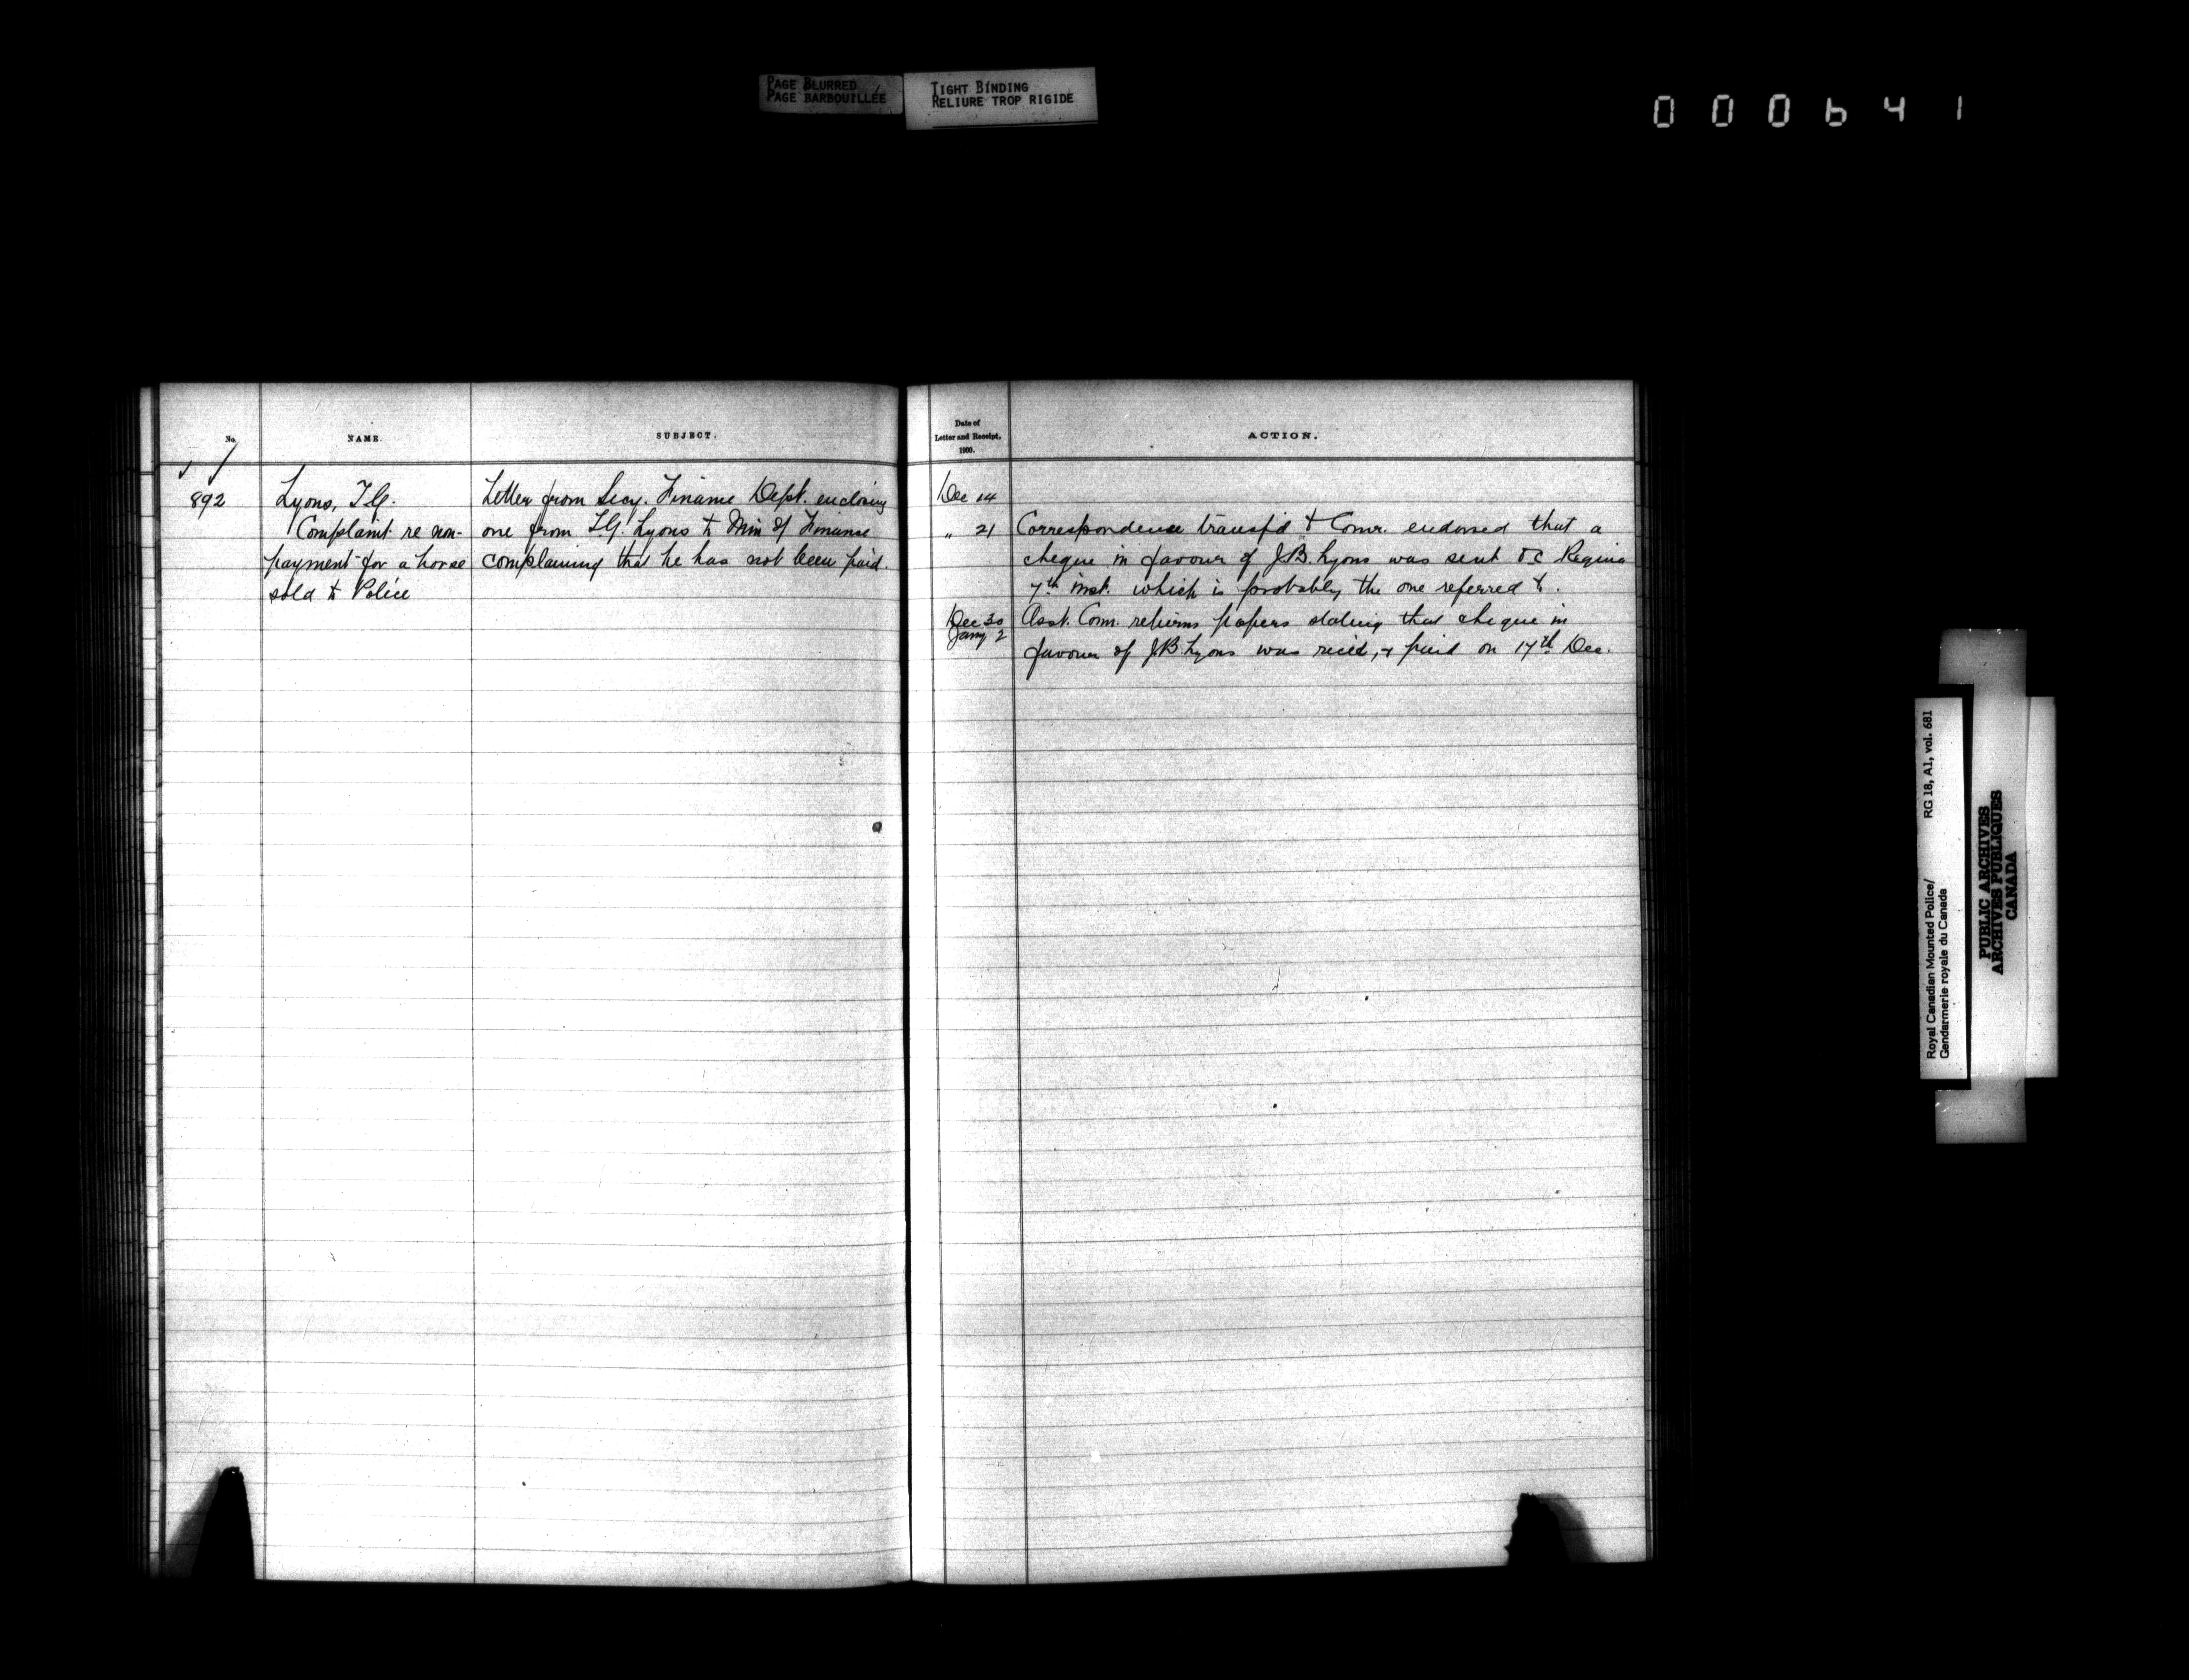 PAGE BLURRED
PAGE BARBOUILLÉE
TIGHT BINDING
RELIURE TROP RIGIDE
000641
No.
NAME.
SUBJECT.
892
Lyons, T.G.
Complaint re non-
payment for a horse
sold to Police
Letter from Secy. Finance Dept. enclosing
one from T.G. Lyons to Min of Finance
complaining that he has not been paid.
Date of
Letter and Receipt.
1900.
ACTION.
Dec 14
" 21 Correspondence transf'd to Comr. endorsed that a
cheque in favour of J.B. Lyons was sent O.C Regina
7th inst. which is probably the one referred to.
Dec 30
Jany 2
Asst. Com. returns papers stating that cheque in
favour of J.B. Lyons was rec'd, + paid on 17th Dec.
Royal Canadian Mounted Police/
Gendarmerie royale du Canada
RG 18, A1, vol. 681
PUBLIC ARCHIVES
ARCHIVES PUBLIQUES
CANADA